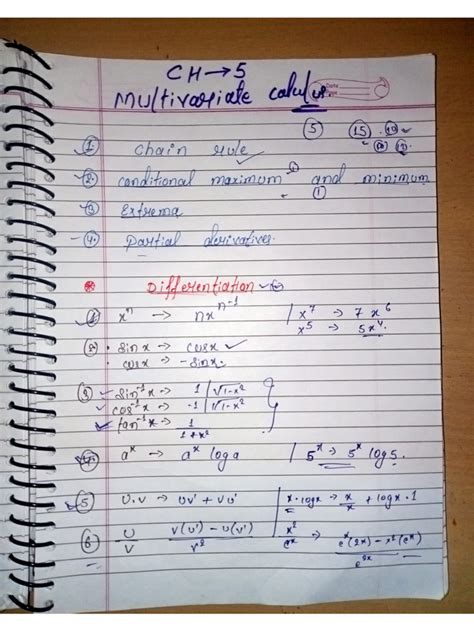 CH→5
Multivariate calculus
Date
⑤ ⑮ ⑩
① Chain rule
② conditional maximum and minimum
①
③ Extrema
④ Partial derivatives.
Differentiation
① xⁿ → nxⁿ⁻¹ | x⁷ → 7x⁶
x⁵ → 5x⁴
② sinx → cosx
cosx → -sinx
③ sin⁻¹x → 1/√1-x²
cos⁻¹x → -1/√1-x²
tan⁻¹x → 1/1+x²
④ aˣ → aˣ loga | 5ˣ → 5ˣ log5.
⑤ U.V → UV' + VU' | x.logx → x/x + logx.1
⑥ U/V V(U') - U(V')/V² x²/eˣ → eˣ(2x) - x²(eˣ)/e²ˣ